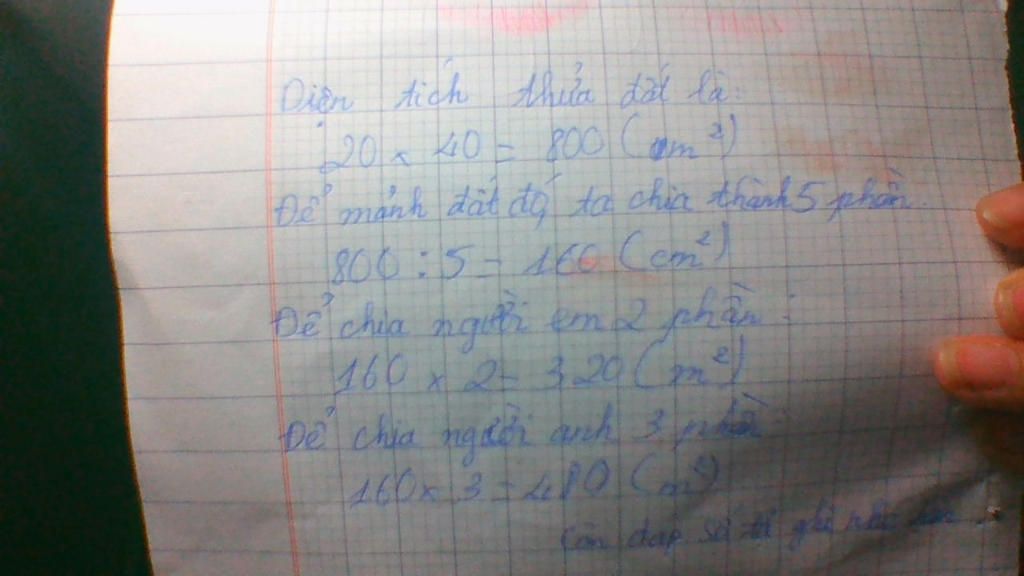 Diện tích thửa đất là:
20 x 40 = 800 (m²)
Để mảnh đất đó ta chia thành 5 phần.
800 : 5 = 160 (cm²)
Để chia người em 2 phần:
160 x 2 = 320 (m²)
Để chia người anh 3 phần:
160 x 3 = 480 (m²)
Còn đáp số tí ghi